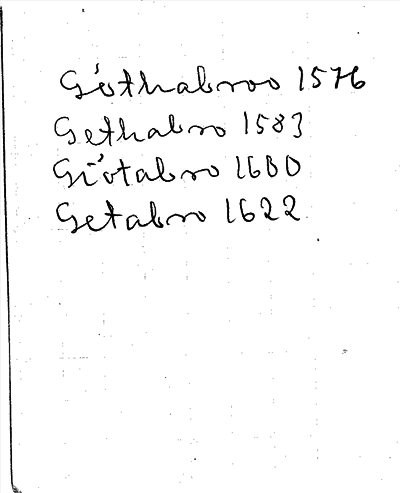 Göthabroo 1576
Gethabro 1583
Götabro 1600
Getabro 1622